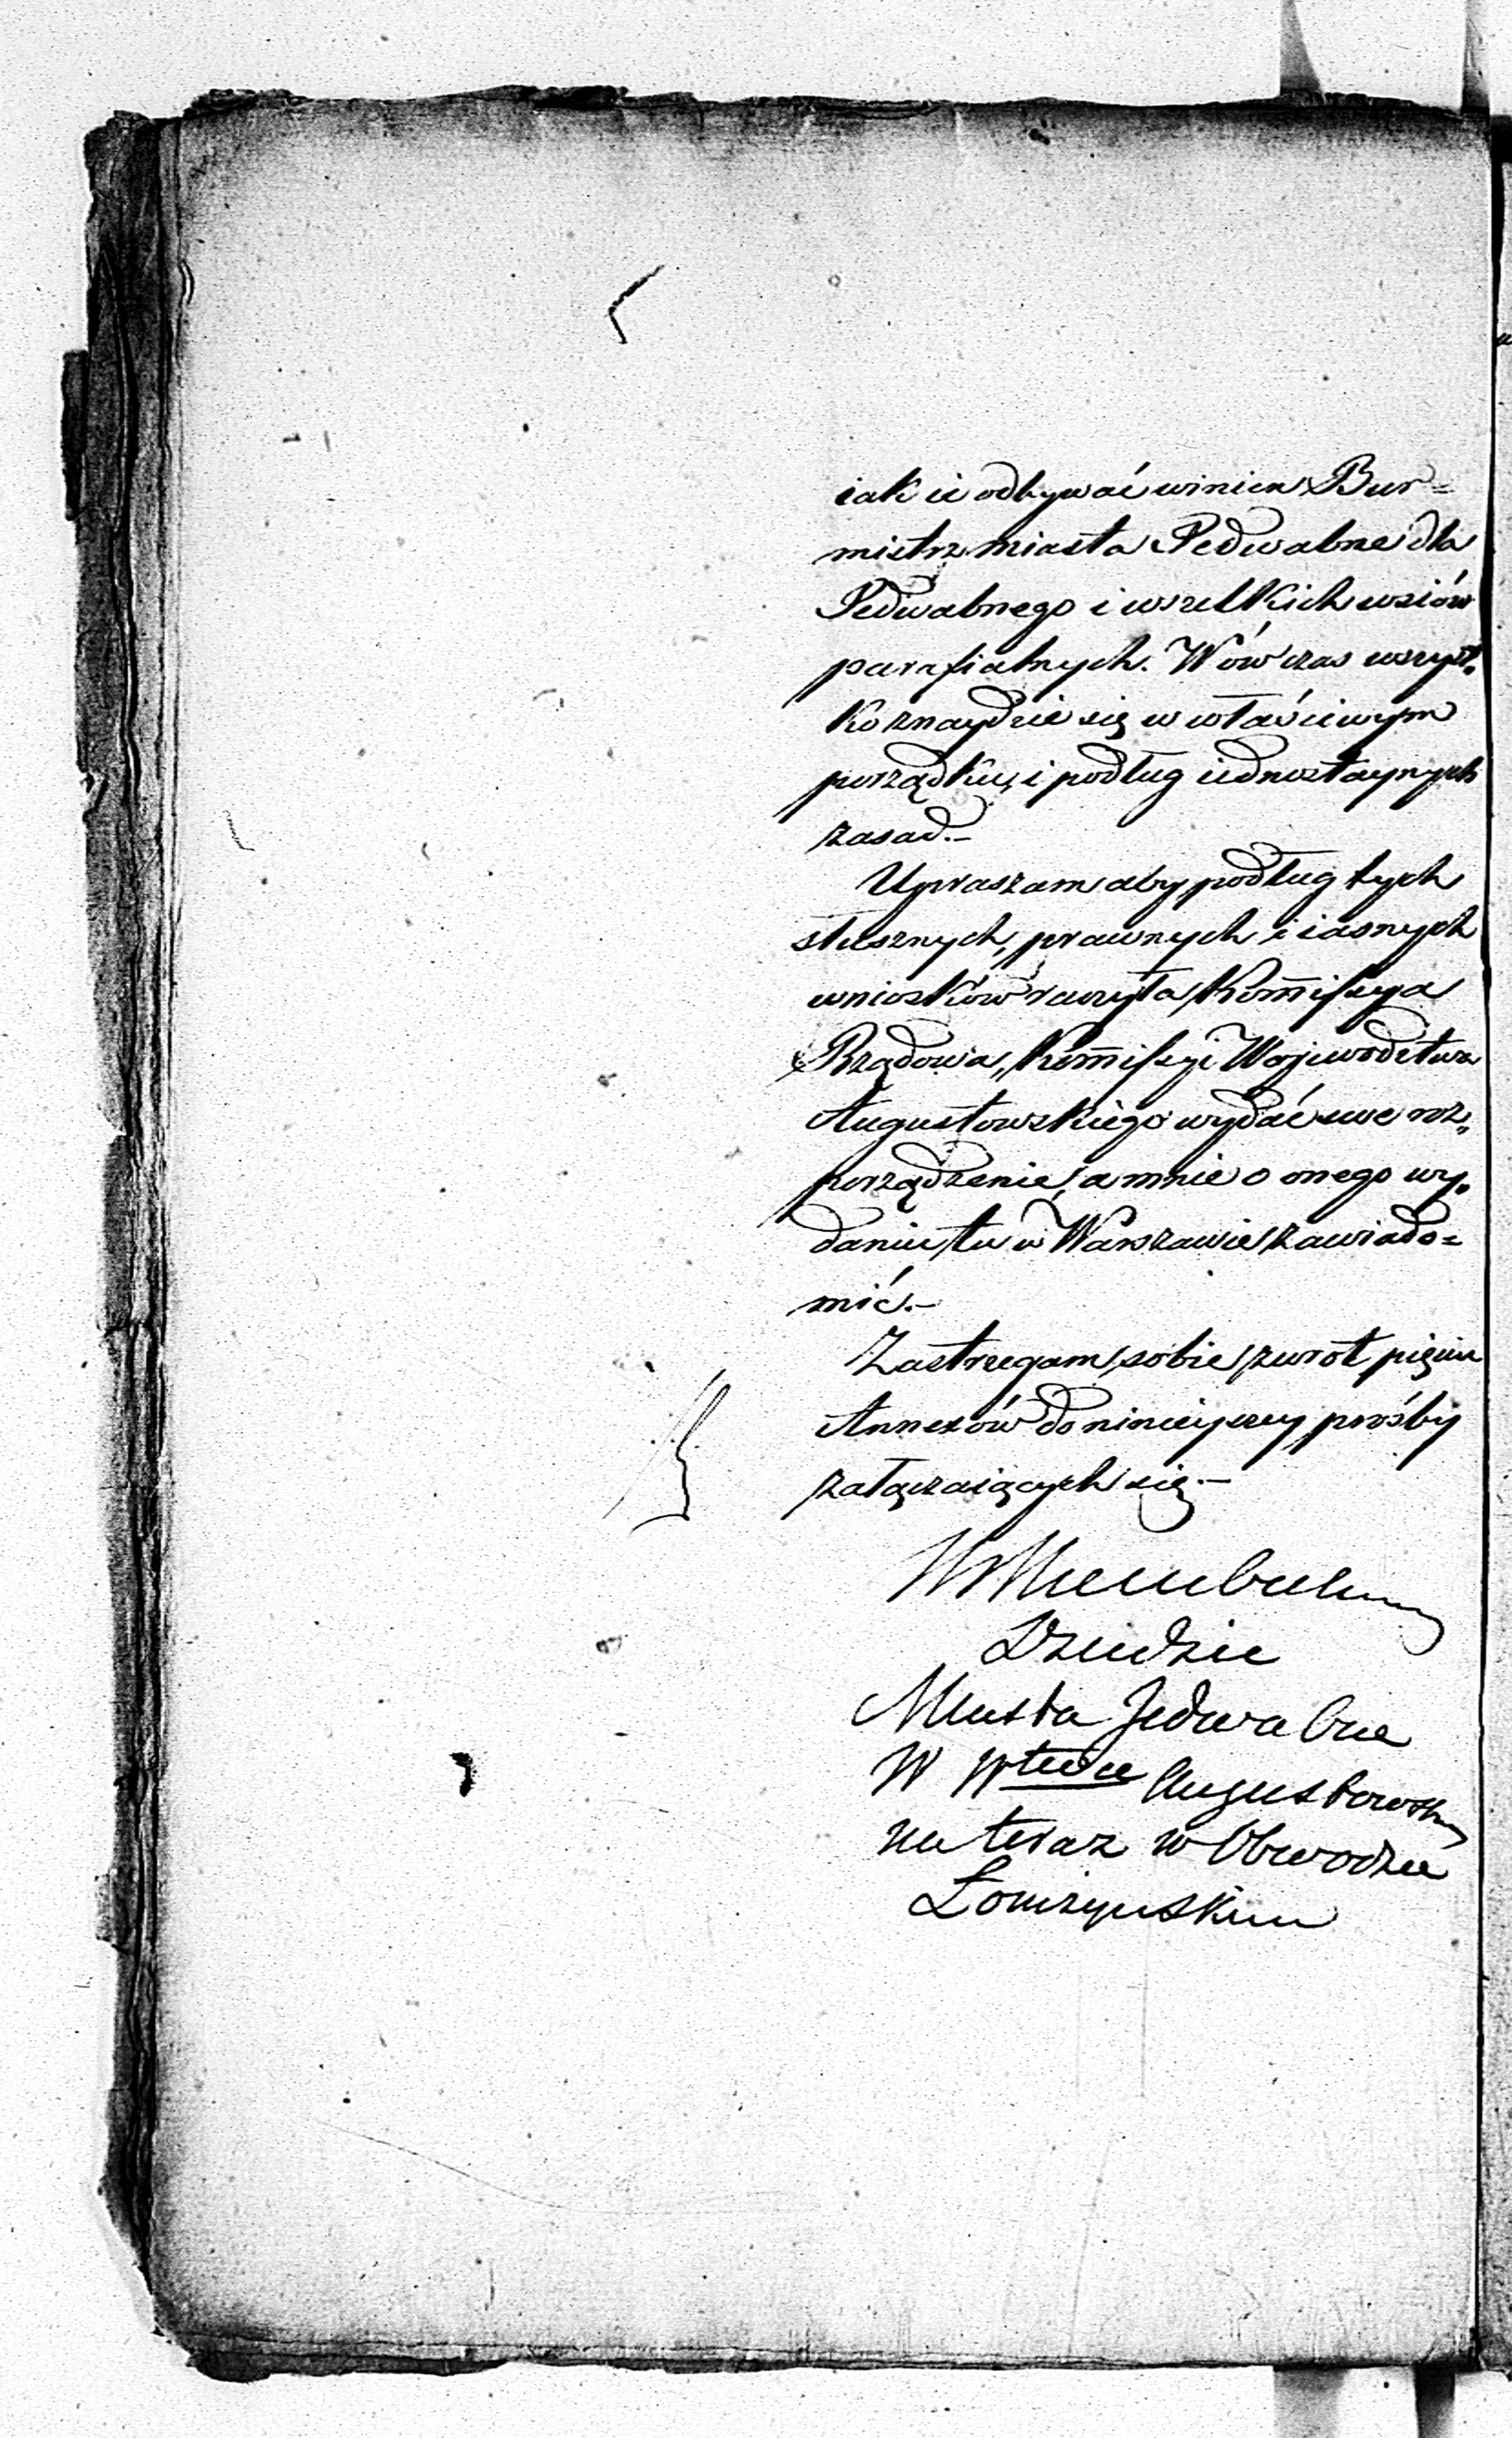 iak ie odbywać winien Bur=
mistrz miasta Jedwabne dla
Jedwabnego i wszelkich wsiów
parafialnych. Wówczas wszyst„
ko znaydzie się w właściwym
porządku, i podług iednostaynych
zasad.–
Upraszam aby podług tych
słusznych, prawnych i iasnych
wniosków raczyła Kom̄issya
Rządowa, Kom̄issyi Woiewództwa
Augustowskiego wydać swe roz„
porządzenie, a mnie o onego wy„
daniu tu w Warszawie zawiado=
mić.–
Zastrzegam sobie zwrot pięciu
Annexów do ninieyszey prośby
załączaiących się.–
Dziedzic
Miasta Jedwabne
W Wtwie Augustowskim
na teraz w Obwodzie
Łomżyńskim